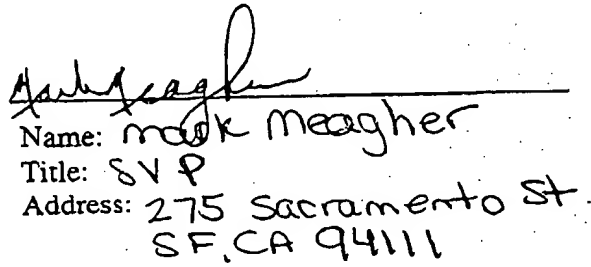 Mark Meagher
Name: Mark Meagher
Title: SVP
Address: 275 Sacramento St.
SF, CA 94111